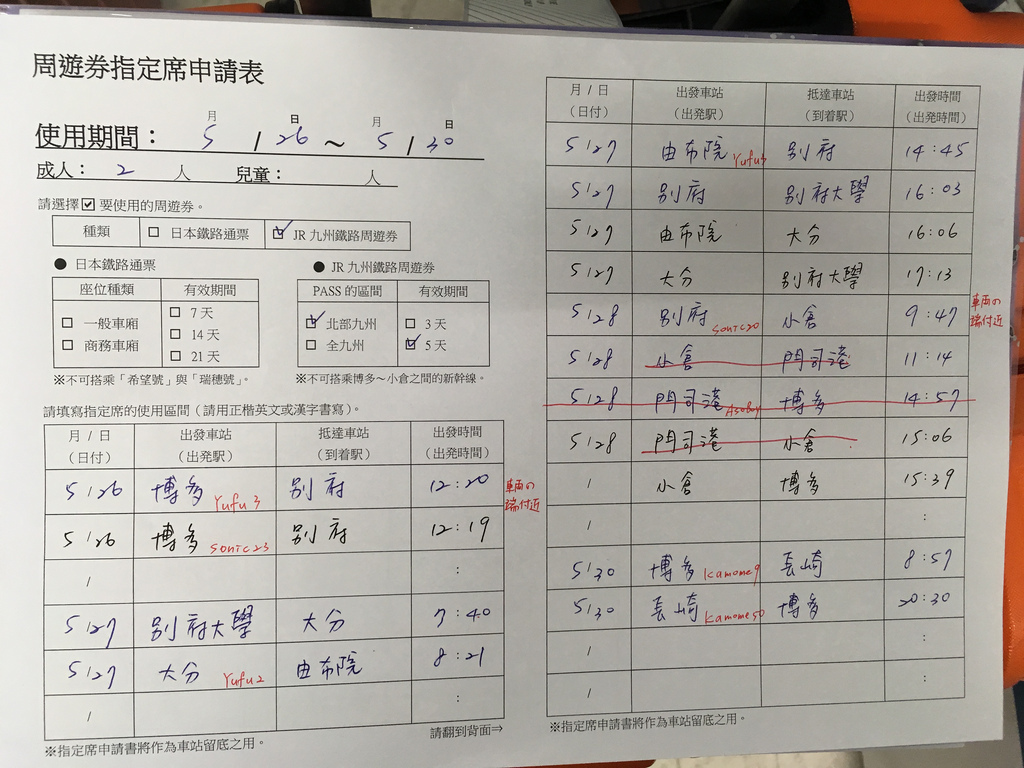 周遊券指定席申請表
月 日 月 日
使用期間： 5 / 26 ～ 5 / 30
成人： 2 人 兒童： 人
請選擇☑要使用的周遊券。
種類 □ 日本鐵路通票 ☑ JR 九州鐵路周遊券
● 日本鐵路通票
座位種類 有效期間
□ 一般車廂 □ 7 天
□ 商務車廂 □ 14 天
□ 21 天
※不可搭乘「希望號」與「瑞穗號」。
● JR 九州鐵路周遊券
PASS 的區間 有效期間
☑ 北部九州 □ 3 天
□ 全九州 ☑ 5 天
※不可搭乘博多～小倉之間的新幹線。
請填寫指定席的使用區間（請用正楷英文或漢字書寫）。
月 / 日 出發車站 抵達車站 出發時間
（日付） （出発駅） （到着駅） （出発時間）
5 / 26 博多 Yufu 3 別府 12：20 車両の
端付近
5 / 26 博多 sonic23 別府 12：19
/ ：
5 / 27 別府大學 大分 7：40
5 / 27 大分 Yufu 2 由布院 8：21
/ ：
請翻到背面⇒
※指定席申請書將作為車站留底之用。
月 / 日 出發車站 抵達車站 出發時間
（日付） （出発駅） （到着駅） （出発時間）
5 / 27 由布院 Yufu3 別府 14：45
5 / 27 別府 別府大學 16：03
5 / 27 由布院 大分 16：06
5 / 27 大分 別府大學 17：13
5 / 28 別府 sonic20 小倉 9：47 車両の
端付近
5 / 28 小倉 門司港 11：14
5 / 28 門司港 Asoboy 博多 14：57
5 / 28 門司港 小倉 15：06
/ 小倉 博多 15：39
/ ：
5 / 30 博多 kamome9 長崎 8：57
5 / 30 長崎 kamome50 博多 20：30
/ ：
/ ：
※指定席申請書將作為車站留底之用。